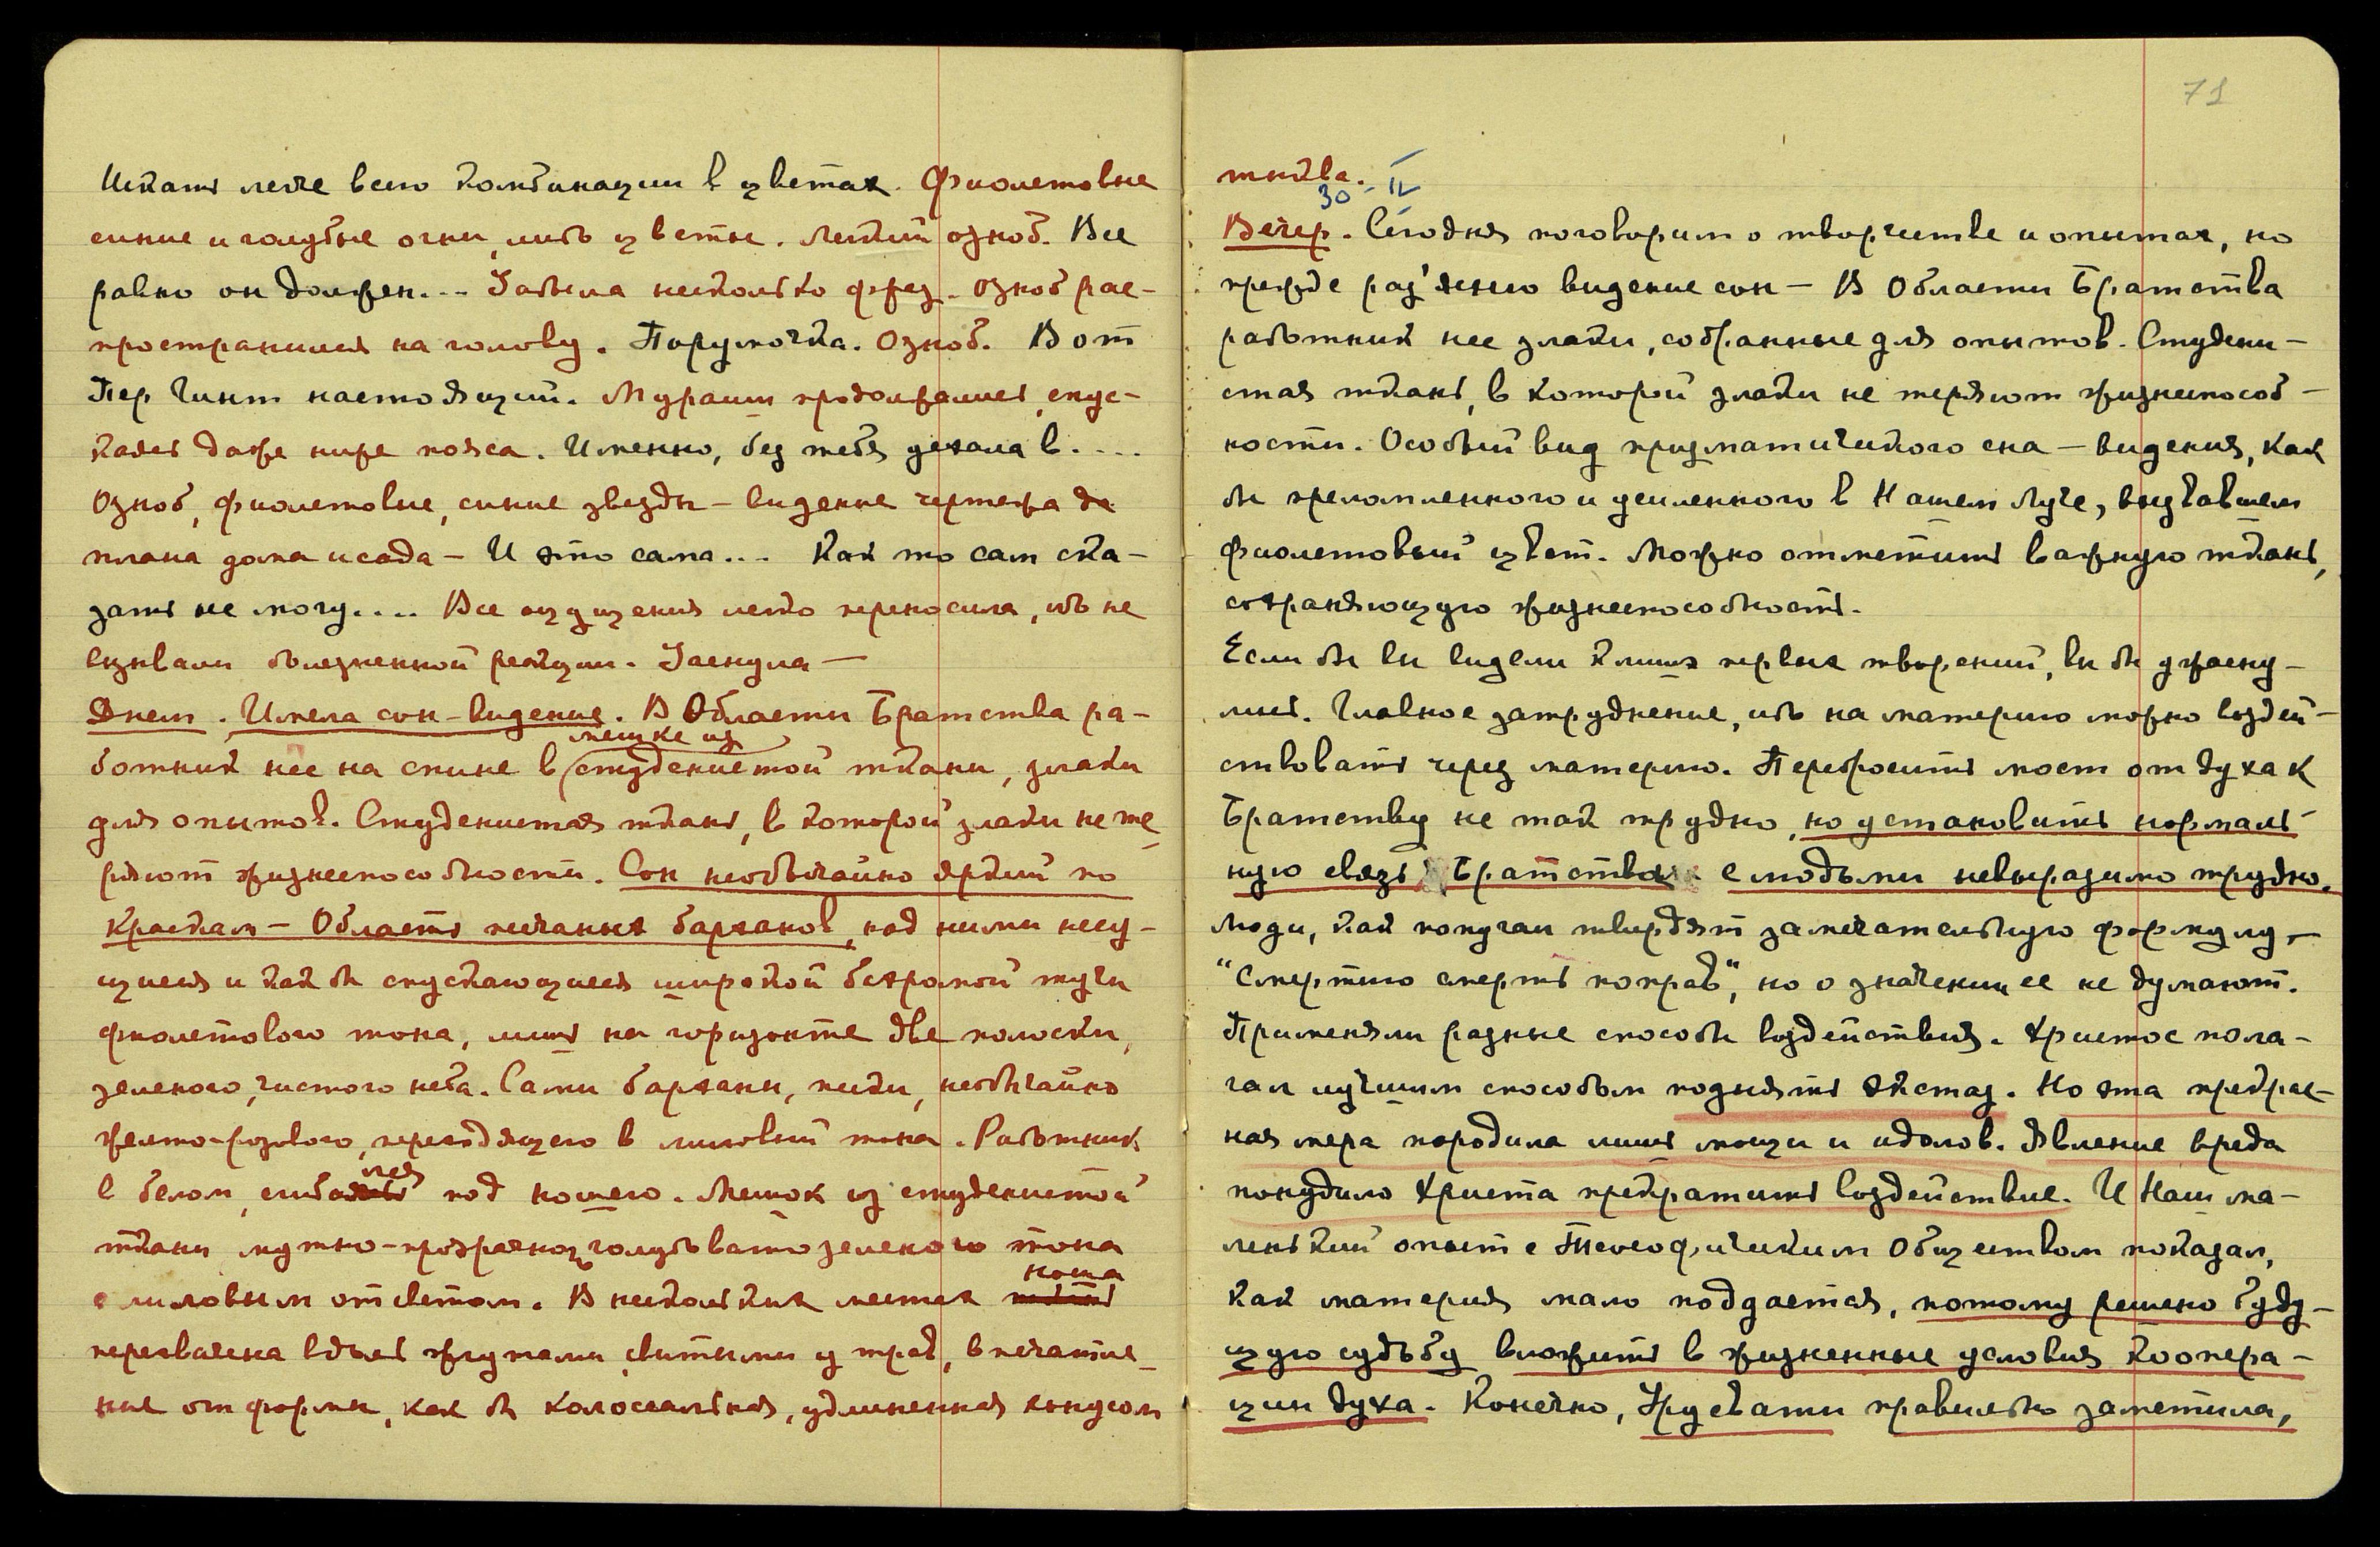 Искать легче всего комбинации в цветах. Фиолетовые
синие и голубые огни, ибо цветы. Легкий озноб. Все
равно он должен... Забыла несколько фраз. Озноб рас-
пространился на голову. Поручочка. Озноб. Вот
Пер Гинт настоящий. Мураши продолжались, спус-
каясь даже ниже пояса. Именно, без тебя делала в....
Озноб, фиолетовые, синие звезды – видение чертежа да
плана дома и сада – И это сама... Как то сам ска-
зать не могу.... Все ощущения легко переносила, ибо не
вызывали болезненной реакции. Заснула –
Днем. Имела сон-видение. В Области Братства ра-
ботник нес на спине в мешке из студенистой ткани, злаки
для опытов. Студенистая ткань, в которой злаки не те-
ряют жизнеспособности. Сон необычайно яркий по
краскам – Область песчаных барханов, над ними несу-
щиеся и как бы спускающиеся широкой бахромой тучи
фиолетового тона, лишь на горизонте две полоски,
зеленого, чистого неба. Сами барханы, пески, необычайно
желто-розового, переходящего в лиловый тона. Работник
в белом, сгибался под ношею. Мешок из студенистой
ткани мутно-прозрачной голубовато зеленого тона
с лиловым отсветом. В нескольких местах ноша
перехвачена вдоль жгутами свитыми из трав, впечатле-
ние от формы, как бы колоссальная, удлиненная конусом
71
тыква.
30 – IV
Вечер. Сегодня поговорим о творчестве и опытах, но
прежде раз'ясню видение сон – В Области Братства
работник нес злаки, собранные для опытов. Студени-
стая ткань, в которой злаки не теряют жизнеспособ-
ности. Особый вид призматического сна – видения, как
бы преломленного и усиленного в Нашем Луче, вызвавшем
фиолетовый цвет. Можно отметить важную ткань,
сохраняющую жизнеспособность.
Если бы вы видели клише первых творений, вы бы ужасну-
лись. Главное затруднение, ибо на материю можно воздей-
ствовать через материю. Перебросить мост от духа к
Братству не так трудно, но установить нормаль-
ную связь Братства с людьми невыразимо трудно.
Люди, как попугаи твердят замечательную формулу –
"Смертию смерть поправ", но о значении ее не думают.
Применяли разные способы воздействия. Христос пола-
гал лучшим способом поднять экстаз. Но эта прекрас-
ная мера породила лишь мощи и идолов. Явление вреда
понудило Христа прекратить воздействие. И Наш ма-
ленький опыт с Теософическим Обществом показал,
как материя мало поддается, потому решено буду-
щую судьбу вложить в жизненные условия коопера-
ции духа. Конечно, Урусвати правильно заметила,